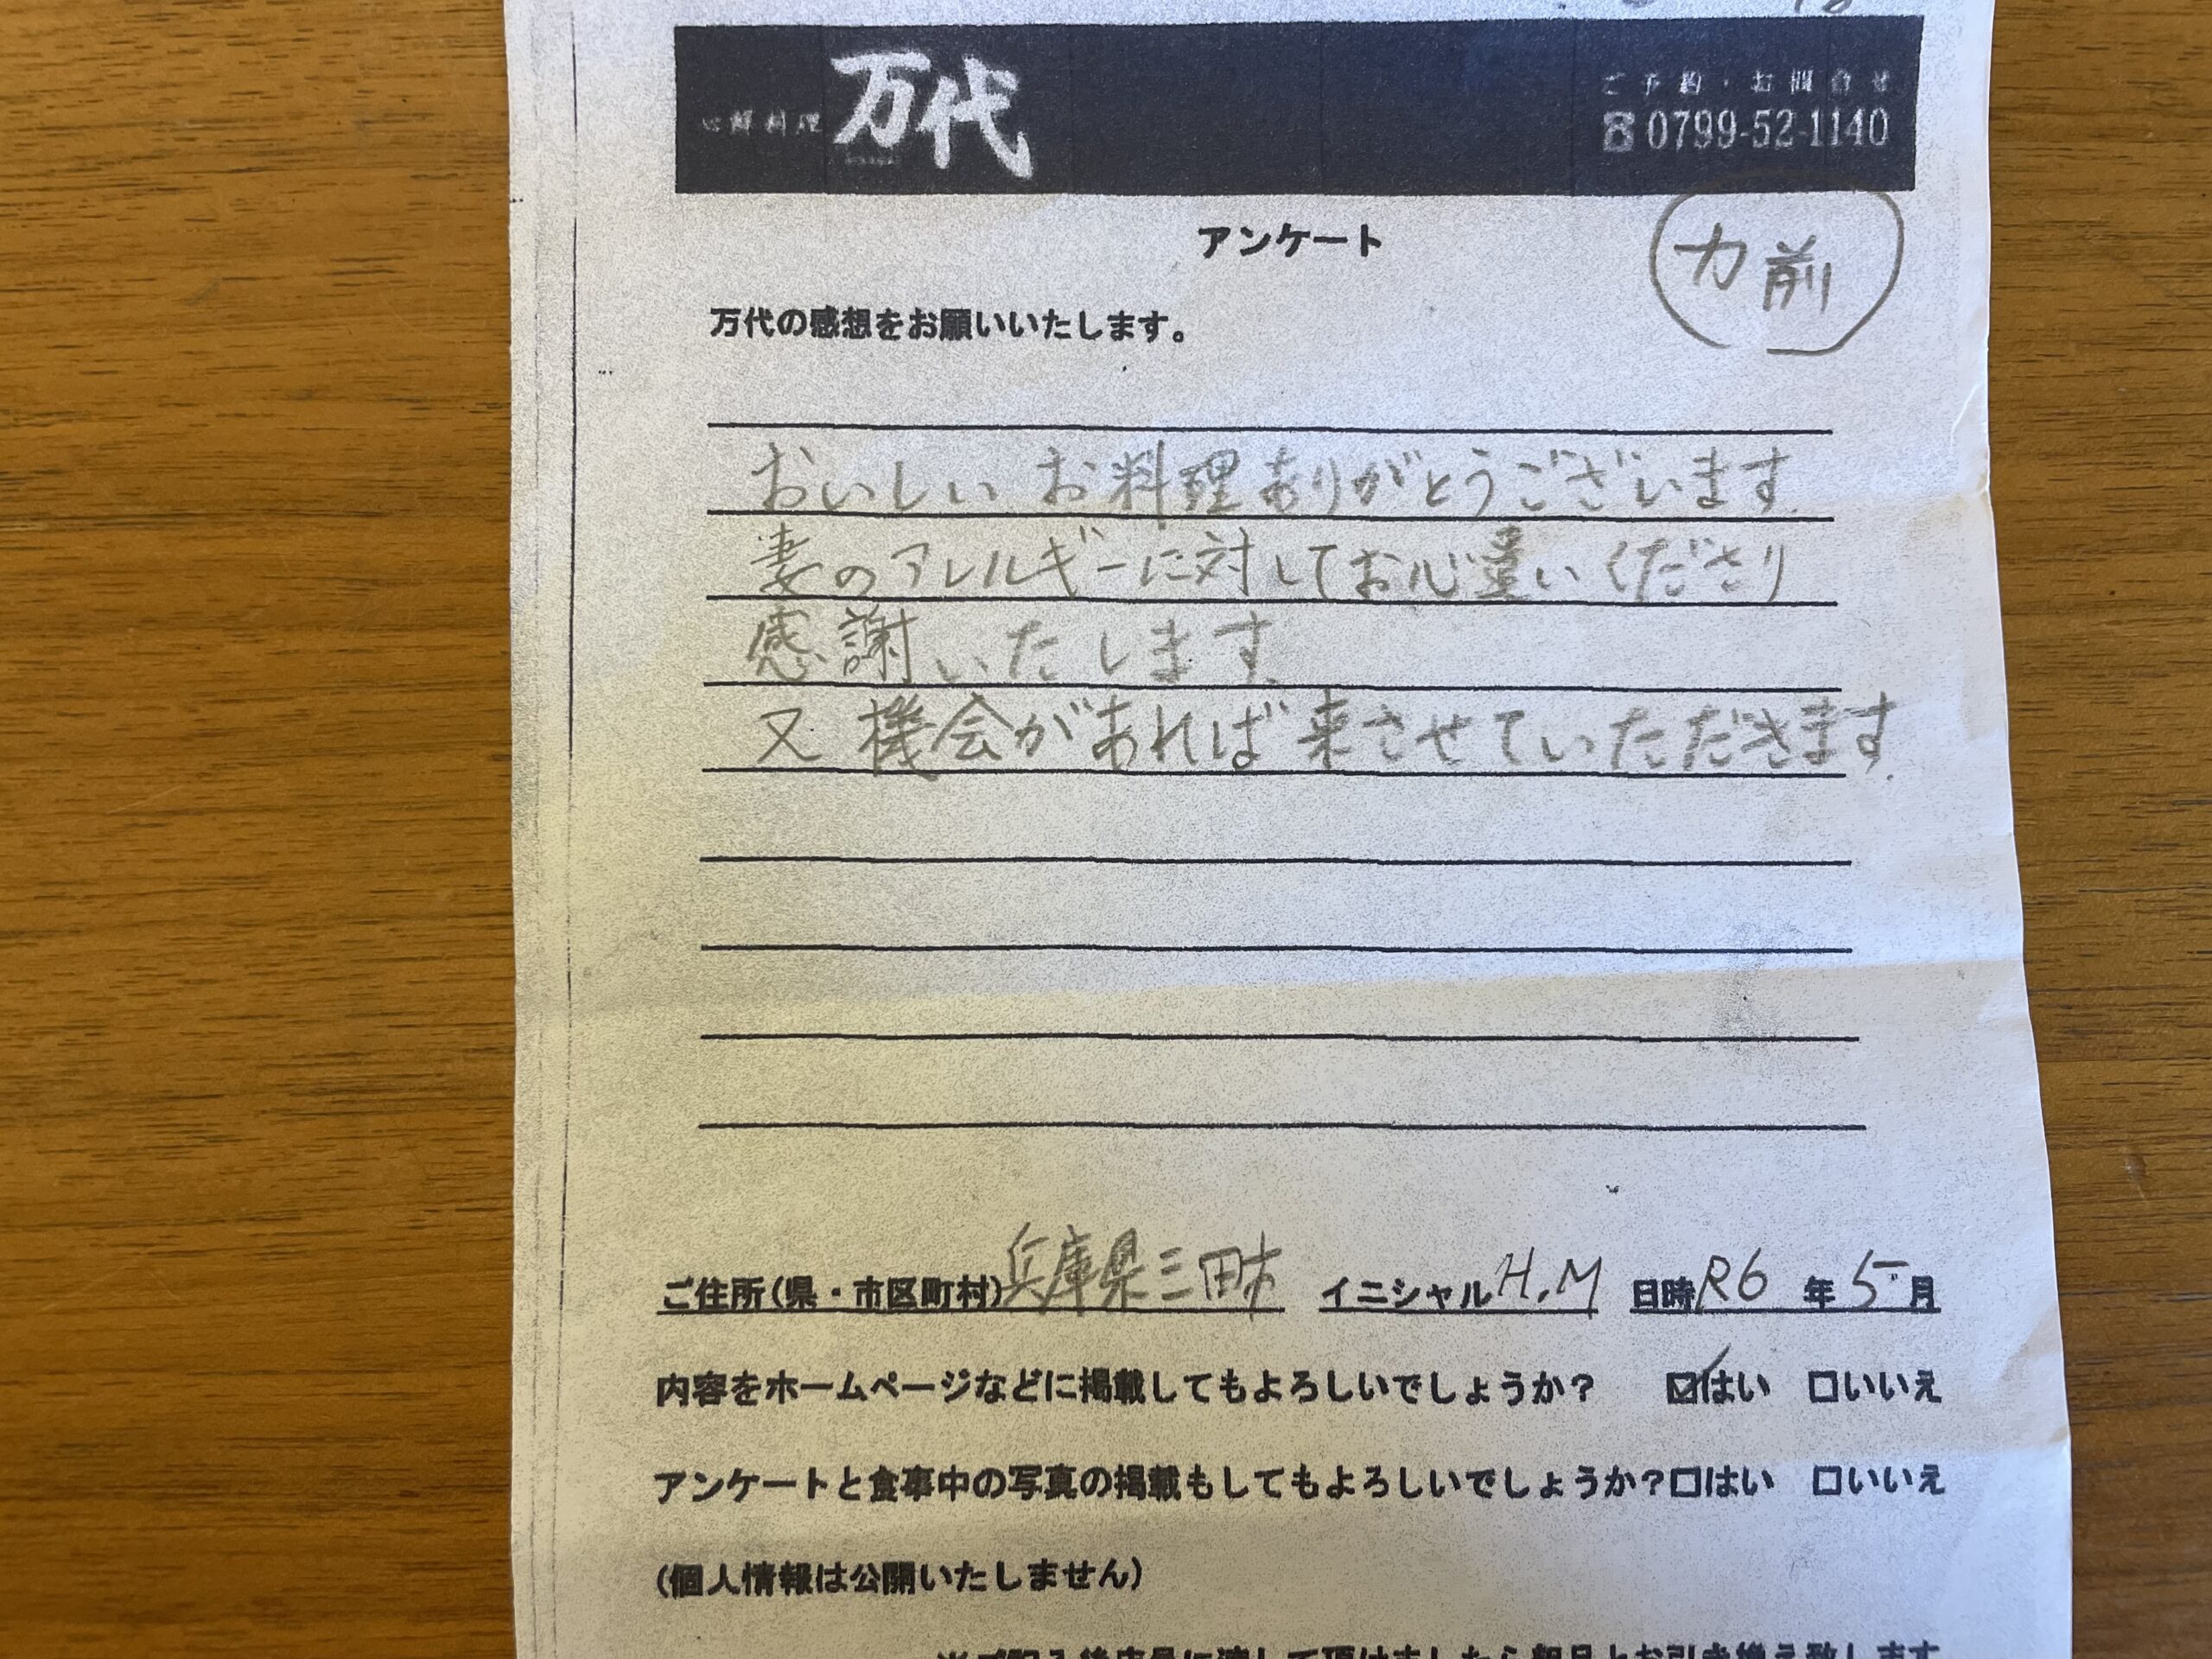 心鮮料理 万代
ご予約・お問合せ
☎0799-52-1140
アンケート
カ前
万代の感想をお願いいたします。
おいしいお料理ありがとうございます。
妻のアレルギーに対してお心遣いくださり
感謝いたします。
又機会があれば来させていただきます。
ご住所(県・市区町村)兵庫県三田市 イニシャル H.M 日時R6年5月
内容をホームページなどに掲載してもよろしいでしょうか? ☑はい □いいえ
アンケートと食事中の写真の掲載もしてもよろしいでしょうか?□はい □いいえ
(個人情報は公開いたしません)